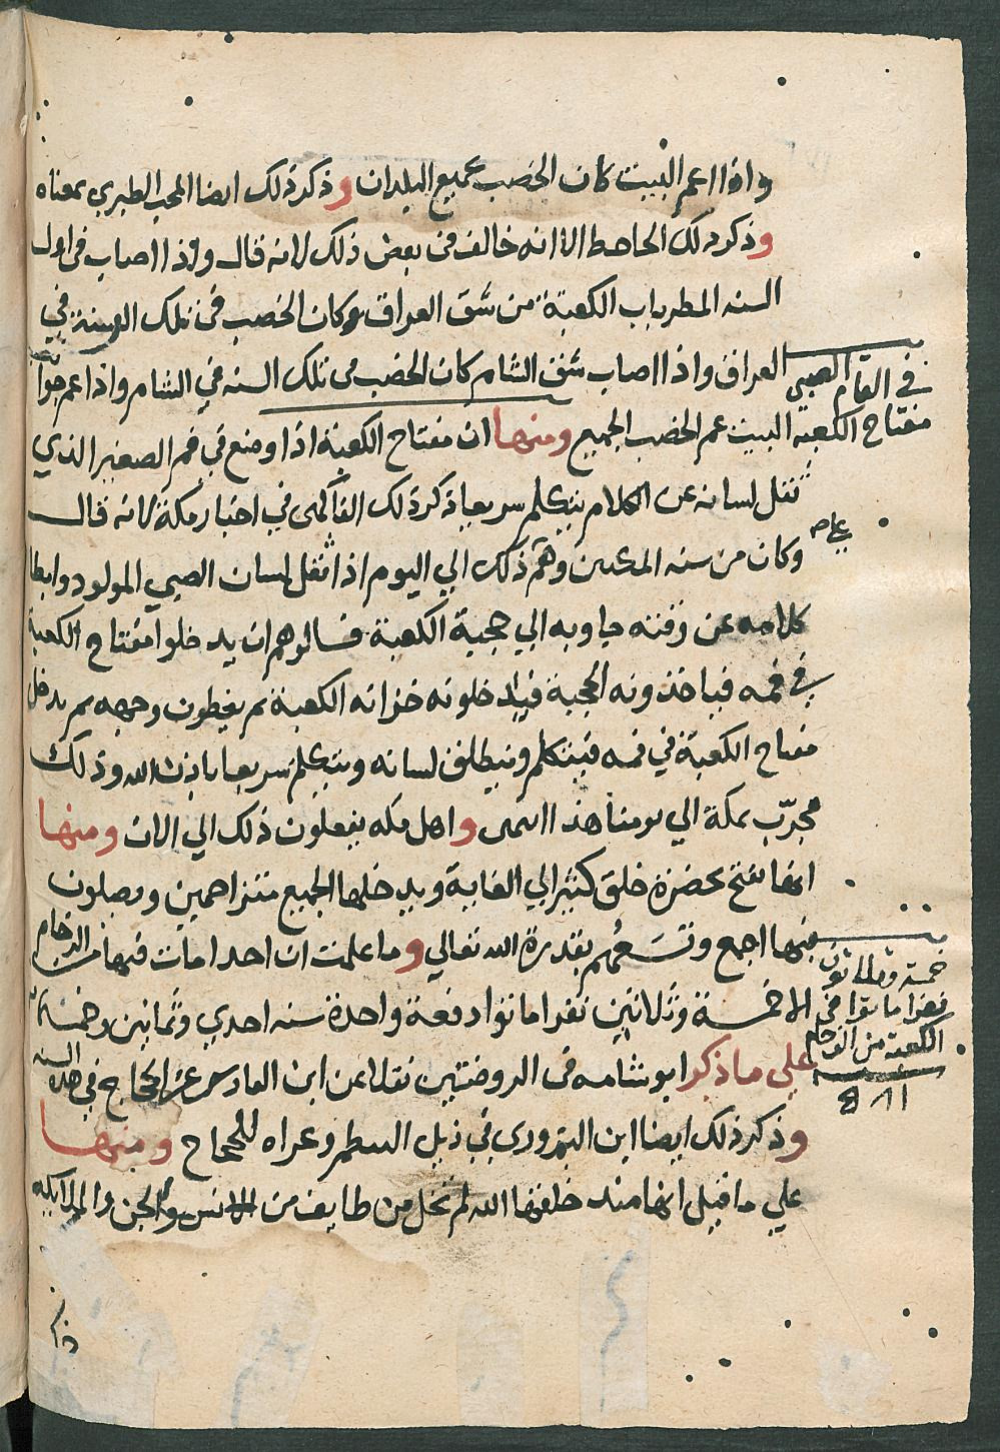 واذا اعم البيت كان الخصب بجميع البلدان وذكر ذلك ايضا المحب الطبري بمعناه
وذكر ذلك الجاحظ الا انه خالف في بعض ذلك لانه قال واذا اصاب في اول
السنه المطر باب الكعبة من شق العراق كان الخصب في تلك السنة في
العراق واذا اصاب شق الشام كان الخصب في تلك السنه في الشام واذا عم جوانب
البيت عم الخصب الجميع ومنها ان مفتاح الكعبة اذا وضع في فم الصغير الذي
ثقل لسانه عن الكلام يتكلم سريعا ذكر ذلك الفاكهى في اخبار مكة لانه قال
وكان من سنه المكيين وهم ذلك الي اليوم اذا ثقل لسان الصبي المولود وابطا
كلامه عن وقته جاوبه الي حجبة الكعبة فسالوهم ان يدخلوا مفتاح الكعبة
في فمه فياخذونه الحجبة فيدخلونه خزانه الكعبة ثم يغطون وجهه ثم يدخل
مفتاح الكعبة في فمه فيتكلم وينطلق لسانه ويتكلم سريعا باذن الله وذلك
مجرّب بمكة الي يومنا هذا انتهى واهل مكه يفعلون ذلك الي الان ومنها
انها تفتح بحضرة خلق كثير الي الغاية ويدخلها الجميع متزاحمين ويصلون
فيها اجمع وتسعُهم بقدرة الله تعالي وما علمت ان احدا مات فيها من الزحام
الا خمسة وثلاثين نفرا ماتوا دفعة واحدة سنه احدي وثمانين وخمسمائة
علي ما ذكر ابو شامه في الروضتين نقلا عن ابن القادسي عن الحجاج في هذه السنه
وذكر ذلك ايضا ابن البزوري في ذيل المنتظم وعزاه للحجاج ومنها
علي ما قيل انها منذ خلقها الله لم تخل من طايف من الانس والجن والملايكه
في الفم الصبي
مفتاح الكعبة
خمسة وثلاثون
نفرا ماتوا في
الكعبة من الزحام
٥٨١